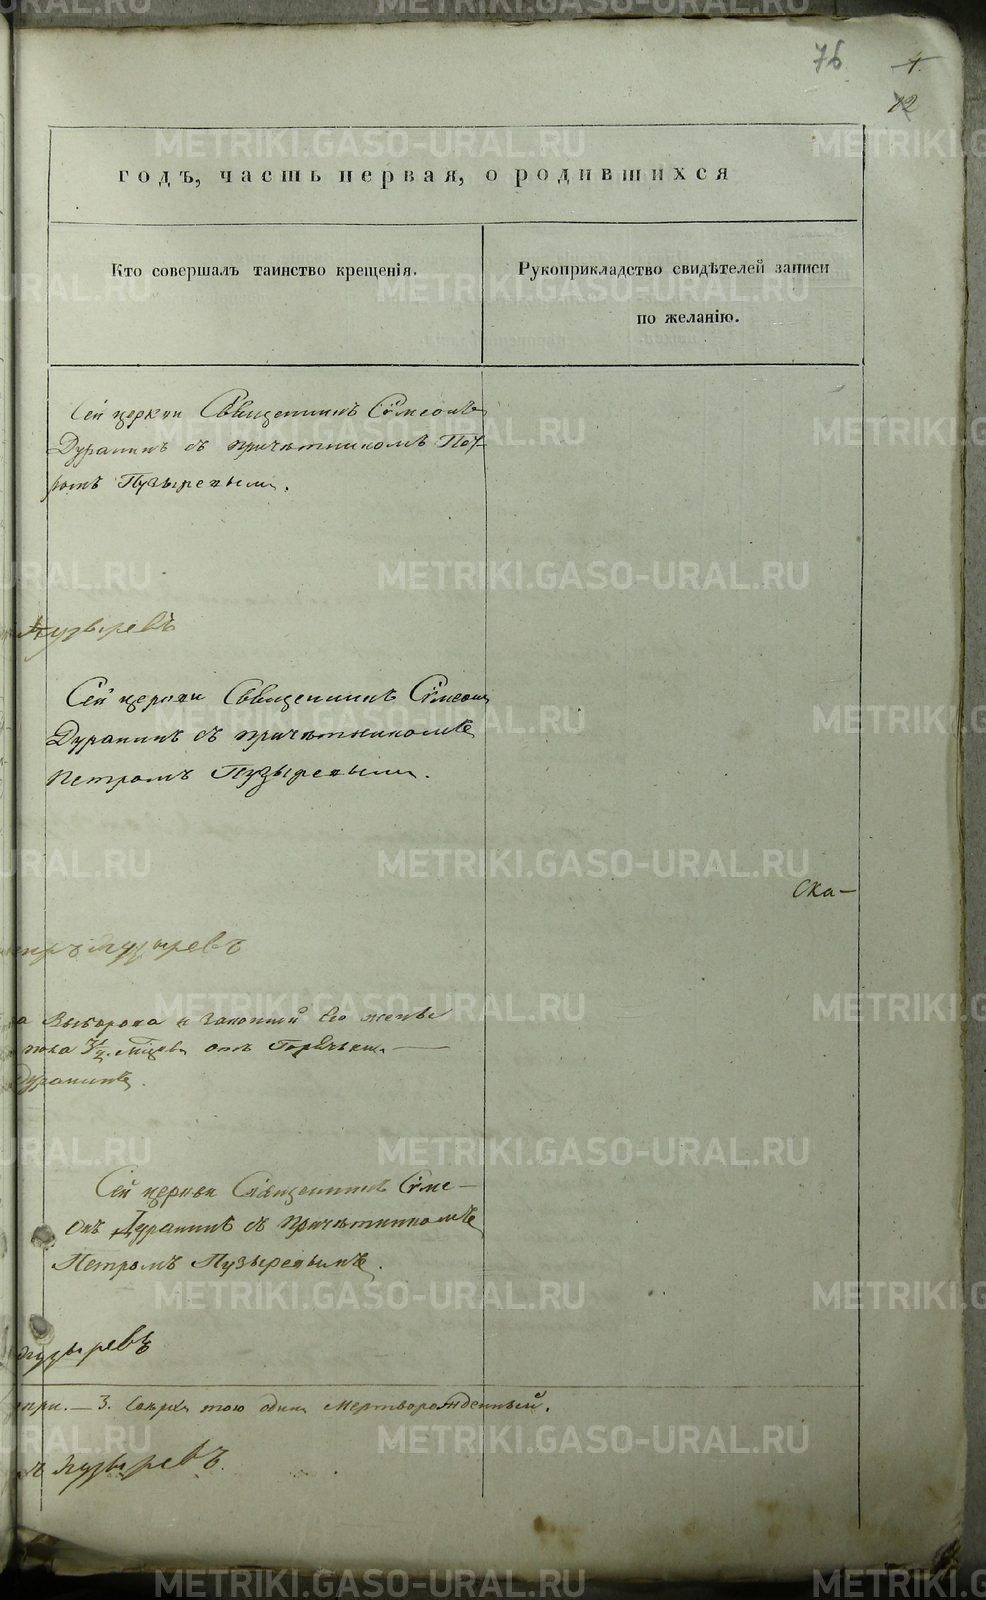 76
4.
12
годъ, часть первая, о родившихся
Кто совершалъ таинство крещенія.
Рукоприкладство свидѣтелей записи
по желанію.
Сей церкви Священникъ Сѵмеонъ
Дурапинъ съ причѣтникомъ Пет-
ромъ Пузыревымъ.
Пузыревъ
Сей церкви Священникъ Сѵмеонъ
Дурапинъ съ причѣтникомъ
Петромъ Пузыревымъ.
Ска-
Пузыревъ
и законной его женѣ
отъ
Сей церкви Священникъ Сѵме-
онъ Дурапинъ съ причѣтникомъ
Петромъ Пузыревымъ.
Пузыревъ
три. — 3. Сверхъ того одинъ мертворожденный.
Пузыревъ.
METRIKI.GASO-URAL.RU